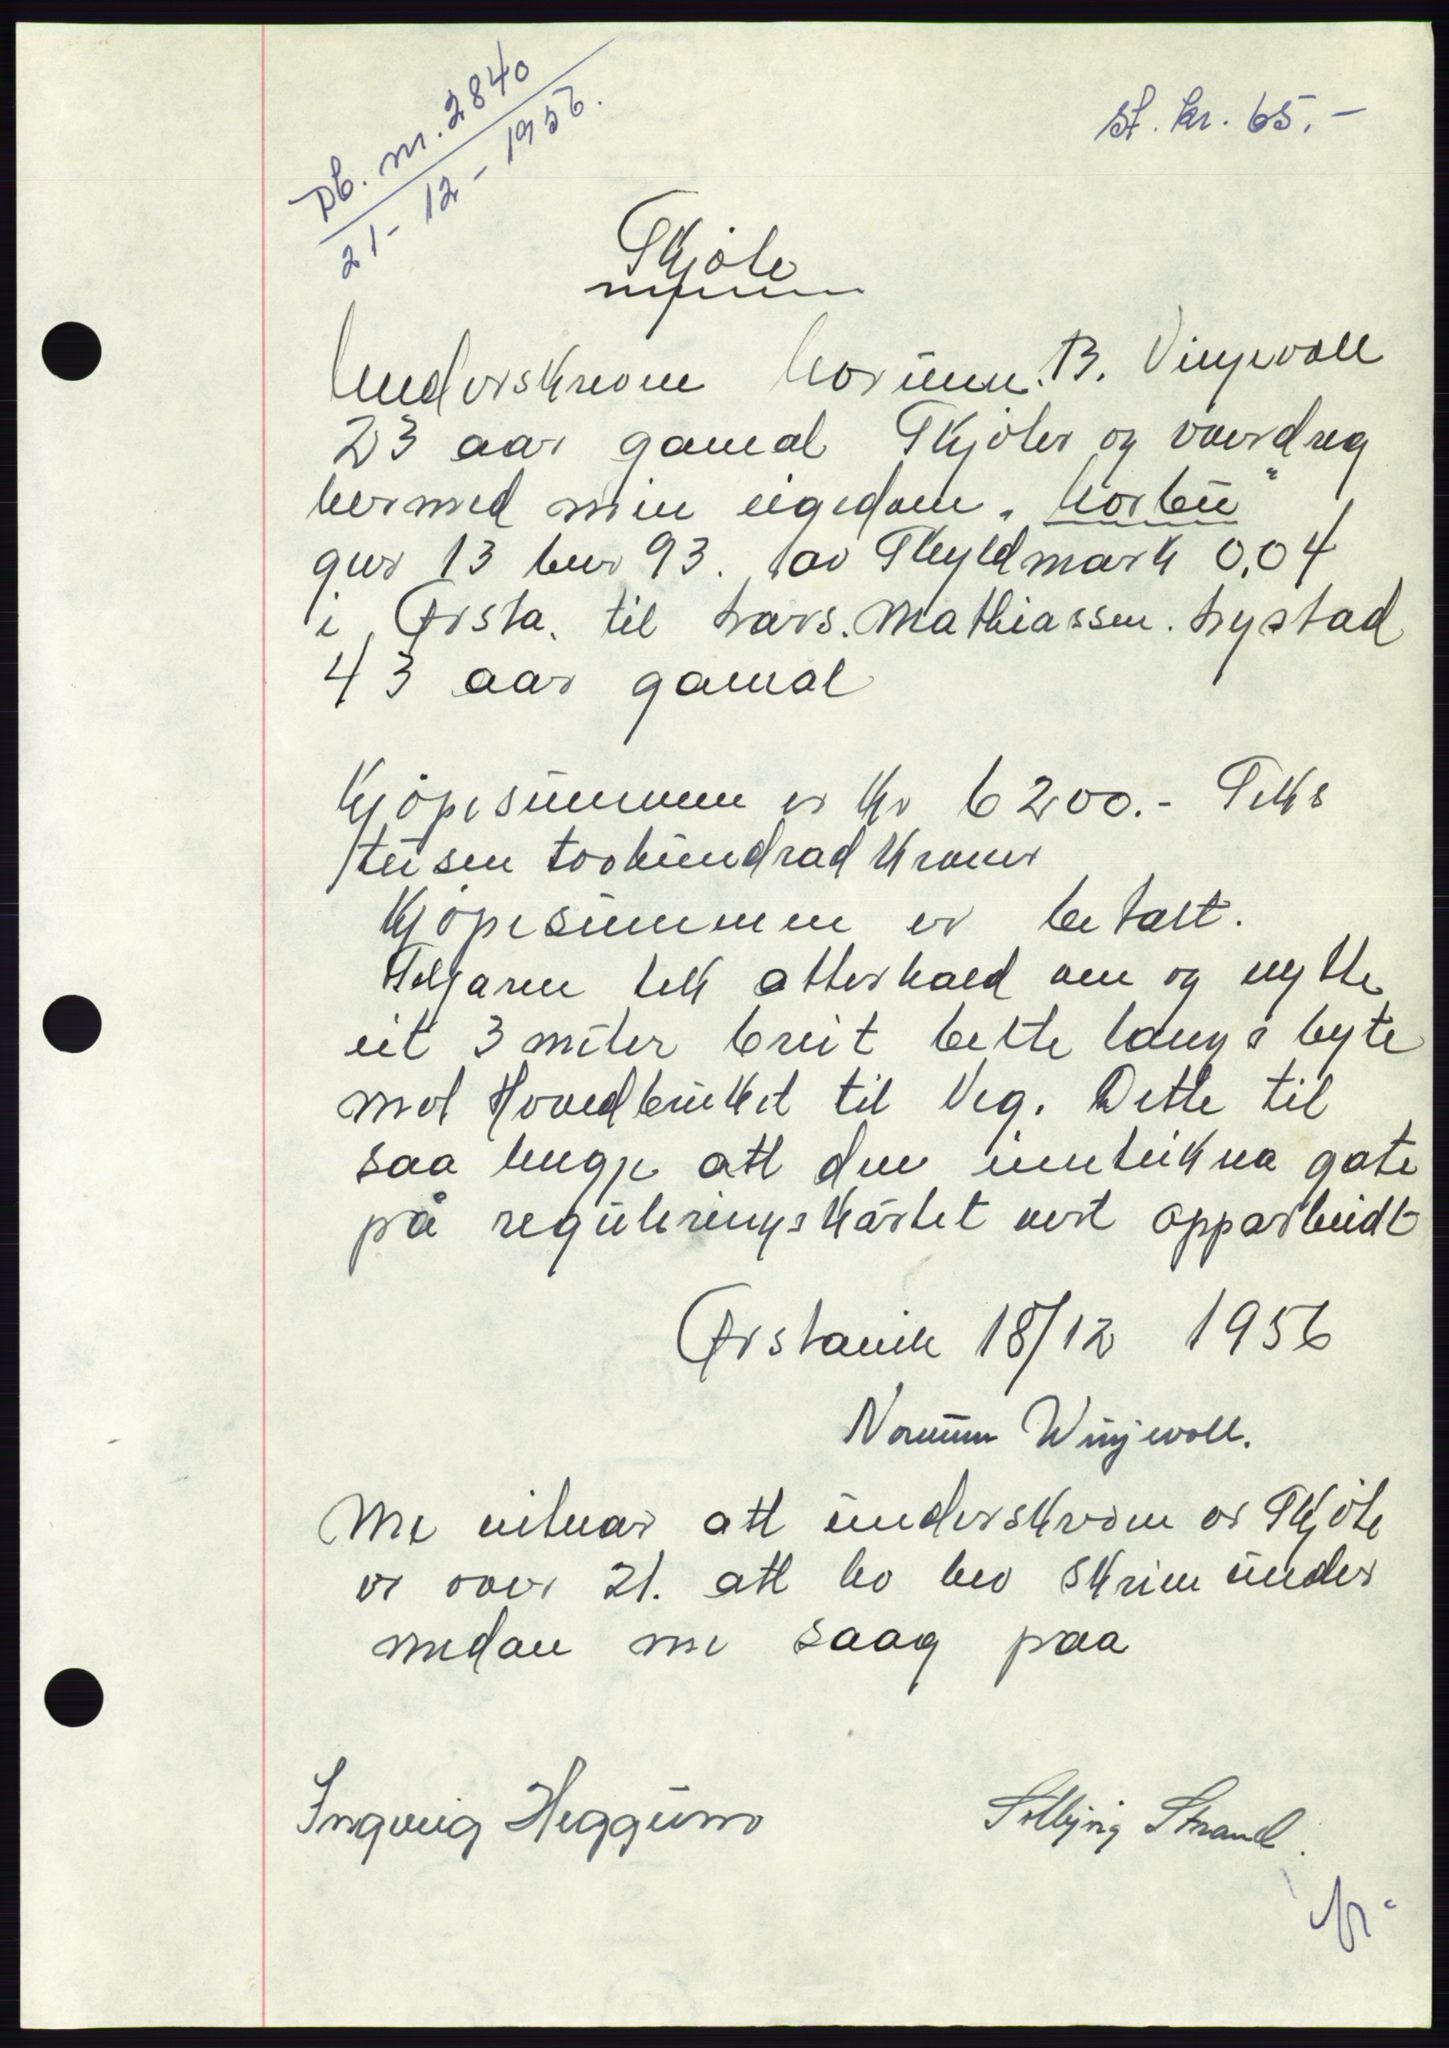 Db. nr. 2840
21-12-1956.
st. kr. 65.-
Skjöte
Underskreven Norunn. B. Vinjevoll
23 aar gamal Skjöter og overdreg
hermed min eigedom. "Norbu"
gnr 13 bnr 93. av Skyldmark 0,04
i Ørsta. til Lars. Mathiassen. Lystad
43 aar gamal
Kjöpesummen er Kr 6200.- Seks
tusen toohundrad Kroner
Kjöpesummen er betalt.
Seljaren tek atterhald om og nytte
eit 3 meter breit belte langs byte
mot Hovedbruket til Veg. Dette til
saa lenge att den innteikna gate
på reguleringskartet vert opparbeidt
Ørstavik 18/12 1956
Norunn Winjevoll.
Me vitnar att underskriven av Skjöte
er over 21. att ho hev skrive under
medan me saag paa
Ingveig Heggum
Solbjørg Strand.